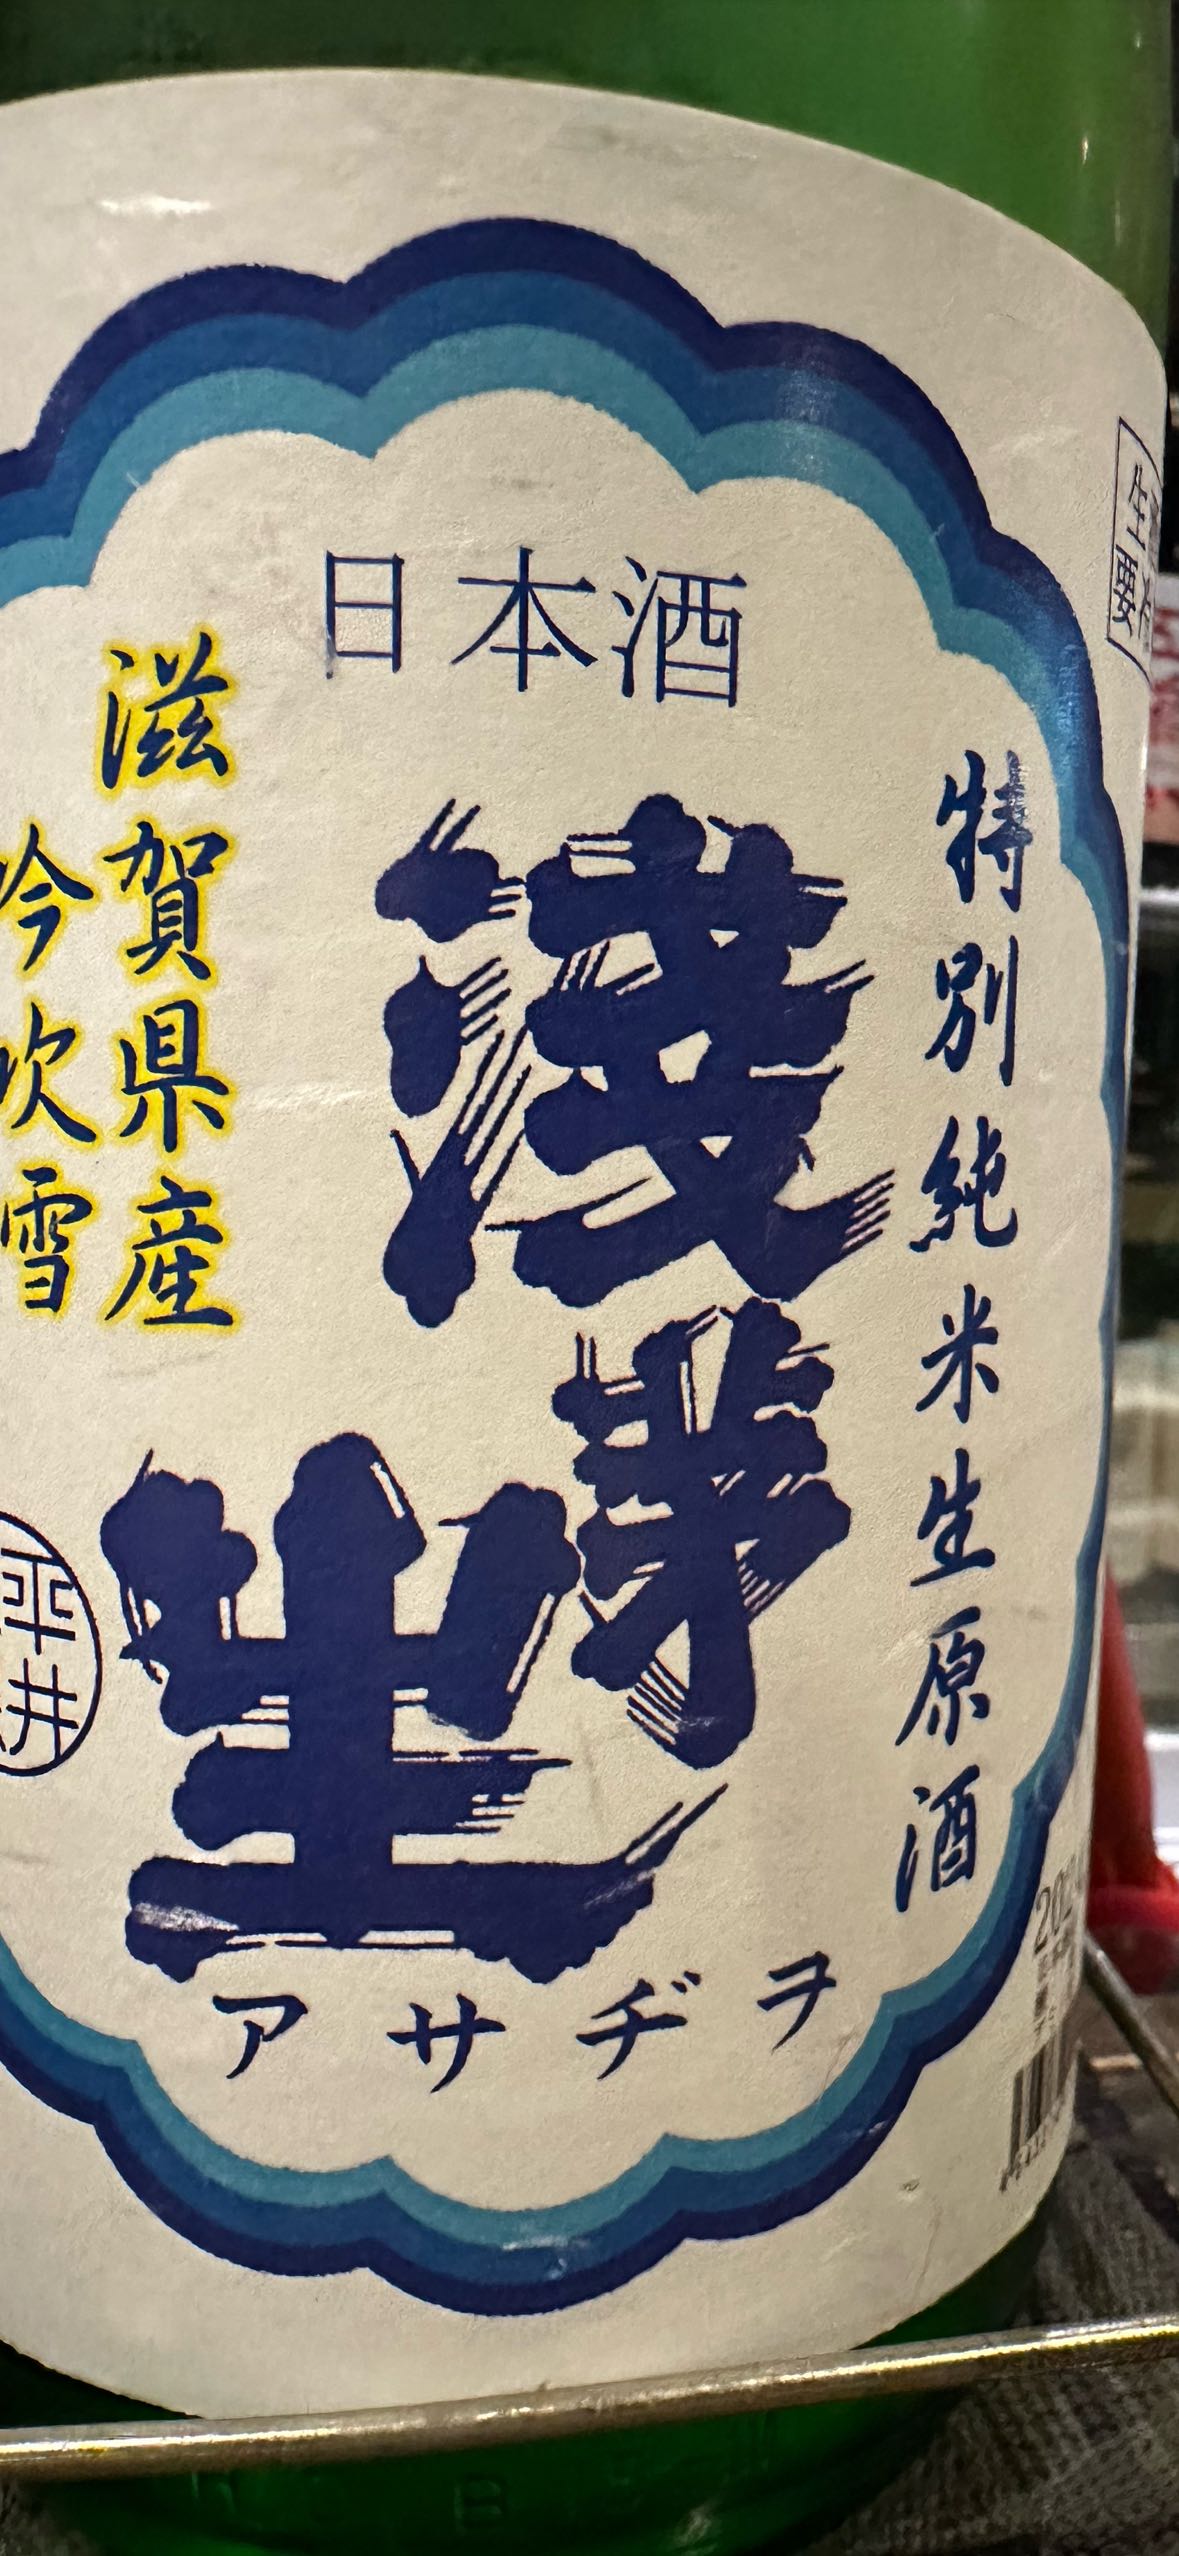 日本酒
特別純米生原酒
浅茅生
滋賀県産
吟吹雪
平井
アサヂヲ
生
要
202